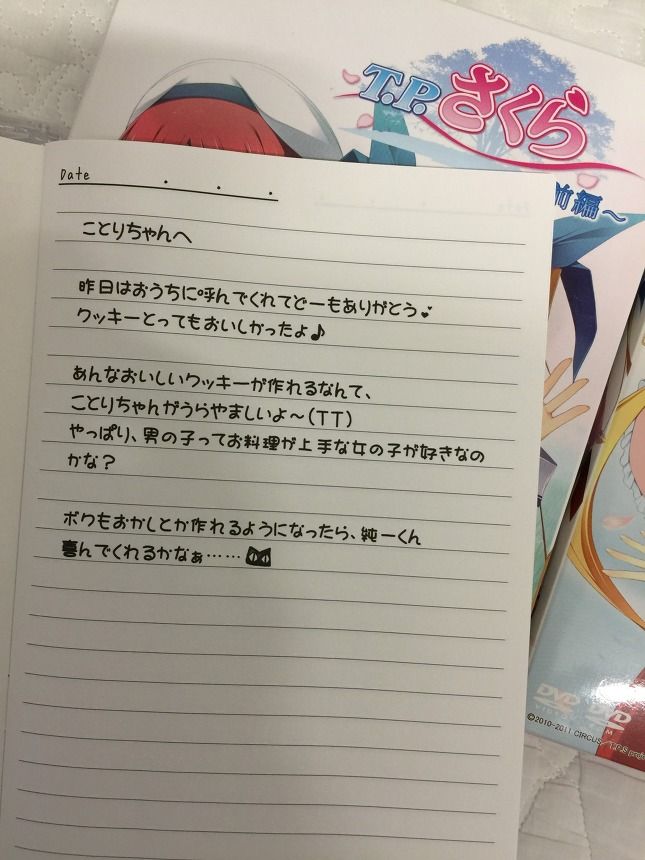 T.P.さくら
前編～
Date . . .
ことりちゃんへ
昨日はおうちに呼んでくれてどーもありがとう
クッキーとってもおいしかったよ♪
あんなおいしいクッキーが作れるなんて、
ことりちゃんがうらやましいよ～(TT)
やっぱり、男の子ってお料理が上手な女の子が好きなの
かな?
ボクもおかしとか作れるようになったら、純一くん
喜んでくれるかなぁ……
DVD
VIDEO
©2010-2011 CIRCUS/T.P.S proj